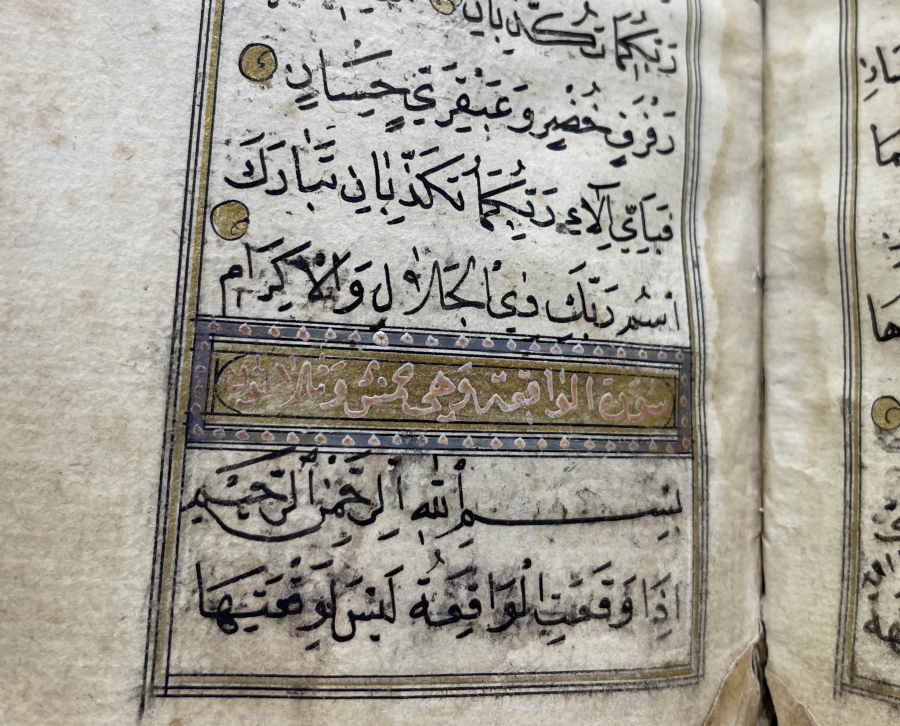 رَبِّكُمَا تُكَذِّبَانِ
رَفْرَفٍ خُضْرٍ وَعَبْقَرِيٍّ حِسَانٍ
فَبِاَيِّ اٰلَاءِ رَبِّكُمَا تُكَذِّبَانِ تَبَارَكَ
اسْمُ رَبِّكَ ذِي الْجَلَالِ وَالْاِكْرَامِ
سورة الواقعة وهى خمس وثلاثون
بِسْمِ اللّٰهِ الرَّحْمٰنِ الرَّحِيْمِ
اِذَا وَقَعَتِ الْوَاقِعَةُ لَيْسَ لِوَقْعَتِهَا